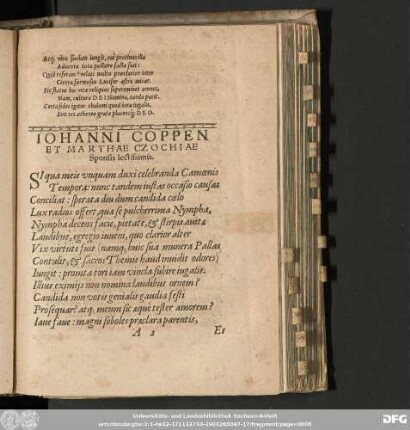 Atq; viro sociam iungit, cui proxima illa
Adiuncta toto pectore fulta fuit:
Quid referam? veluti multa præclarior inter
Cetera formosus Lucifer astra micat.
His flatus hic vitæ reliquos superemines annos,
Hanc, cultura DEI Numina, corda parit.
Certa fides igitur thalami quod iura iugalis,
Sint rex æthereo grata placentq; DEO.
IOHANNI COPPEN
ET MARTHAE CZOCHIAE
Sponsis lectissimis.
SI qua meis vnquam duxi celebranda Camœnis
Tempora: nunc tandem iustas occasio causas
Conciliat: sperata diu dum candida cœlo
Lux radios offert, qua se pulcherrima Nympha,
Nympha decens facie, pietate, & stirpis auitæ
Laudibus, egregio iuueni, quo clarior alter
Vix virtute fuit (namq; huic sua munera Pallas
Contulit, & sacros Themis haud inuidit odores)
Iungit: promta tori iam vincla subire iugalis.
Illius eximijs non nomina laudibus ornem?
Candida non votis genialis gaudia festi
Prosequar? atq; meum sic vsque tester amorem?
Iaue faue: magni soboles præclara parentis,
A 2
Et
Universitäts- und Landesbibliothek Sachsen-Anhalt
DFG